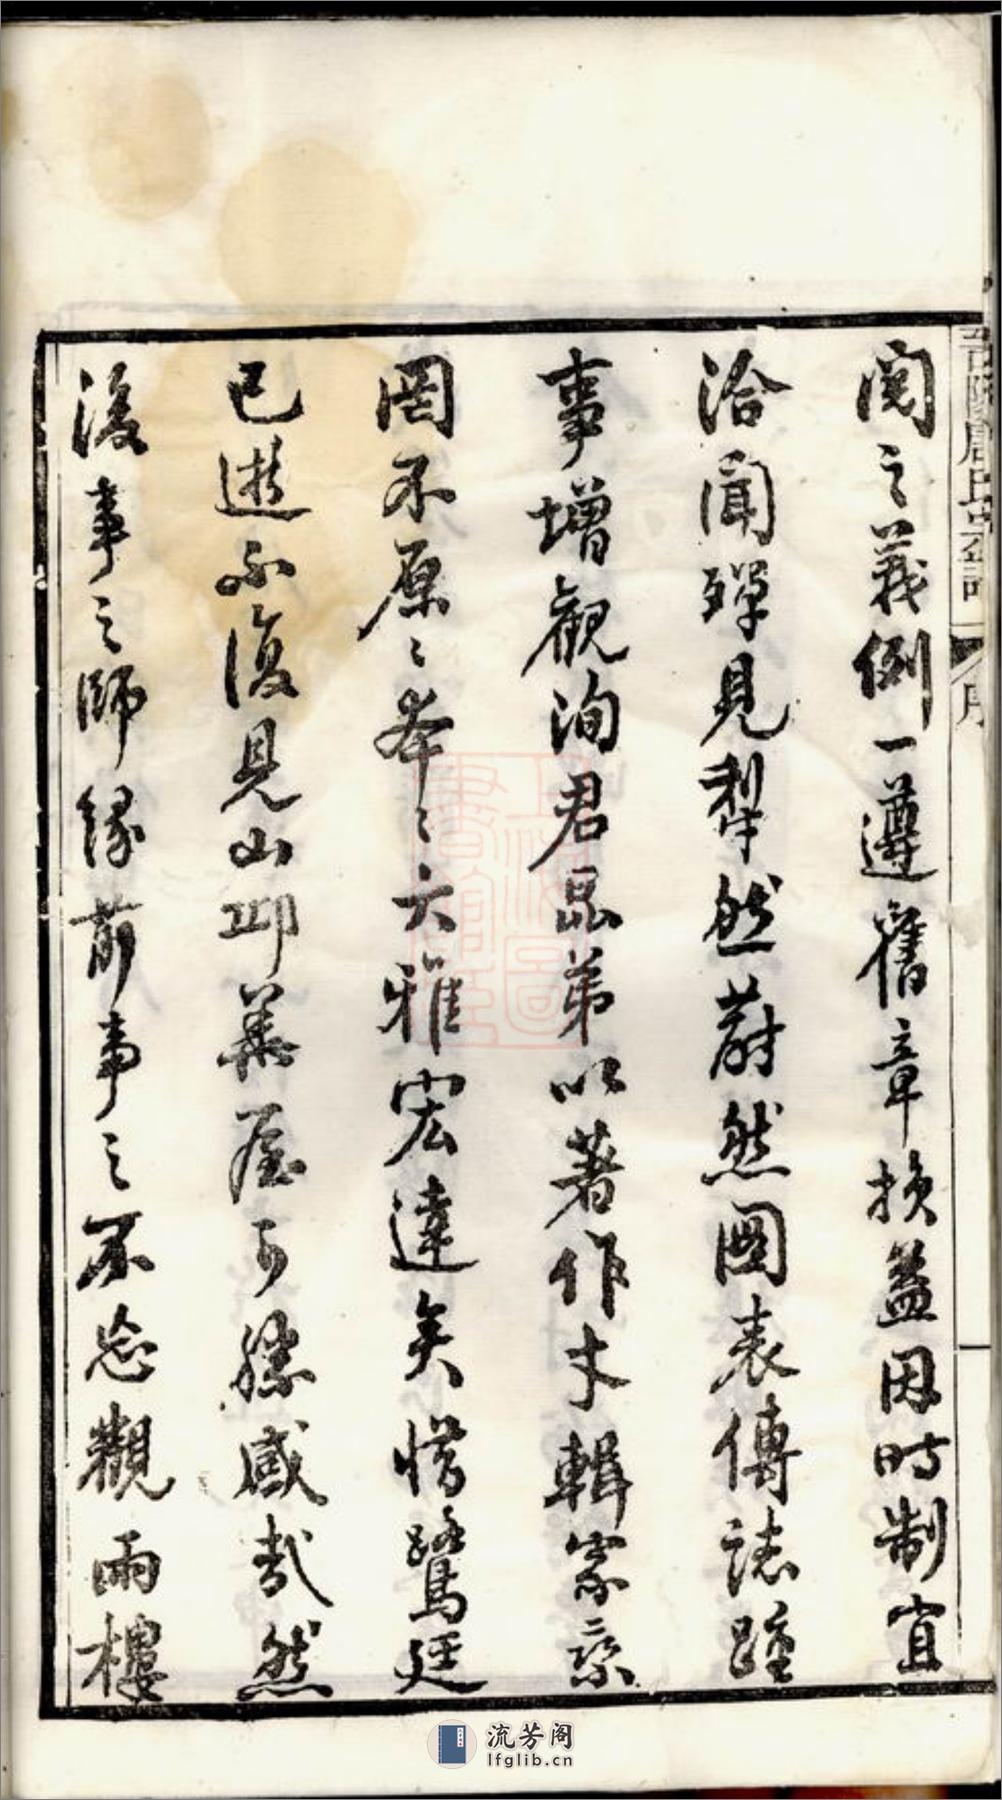 閱之義例一遵舊章損益因時制宜
洽聞殫見犁然蔚然圖表傳誌踵
事增觀洵君昆弟以著作才輯家乘
罔不原〻本〻大雅宏達矣惜鷺廷
已逝不復見山邱華屋可勝感哉然
後事之師緣前事之不忘觀雨樓
唐氏宗譜
序
流芳阁
lfglib.cn